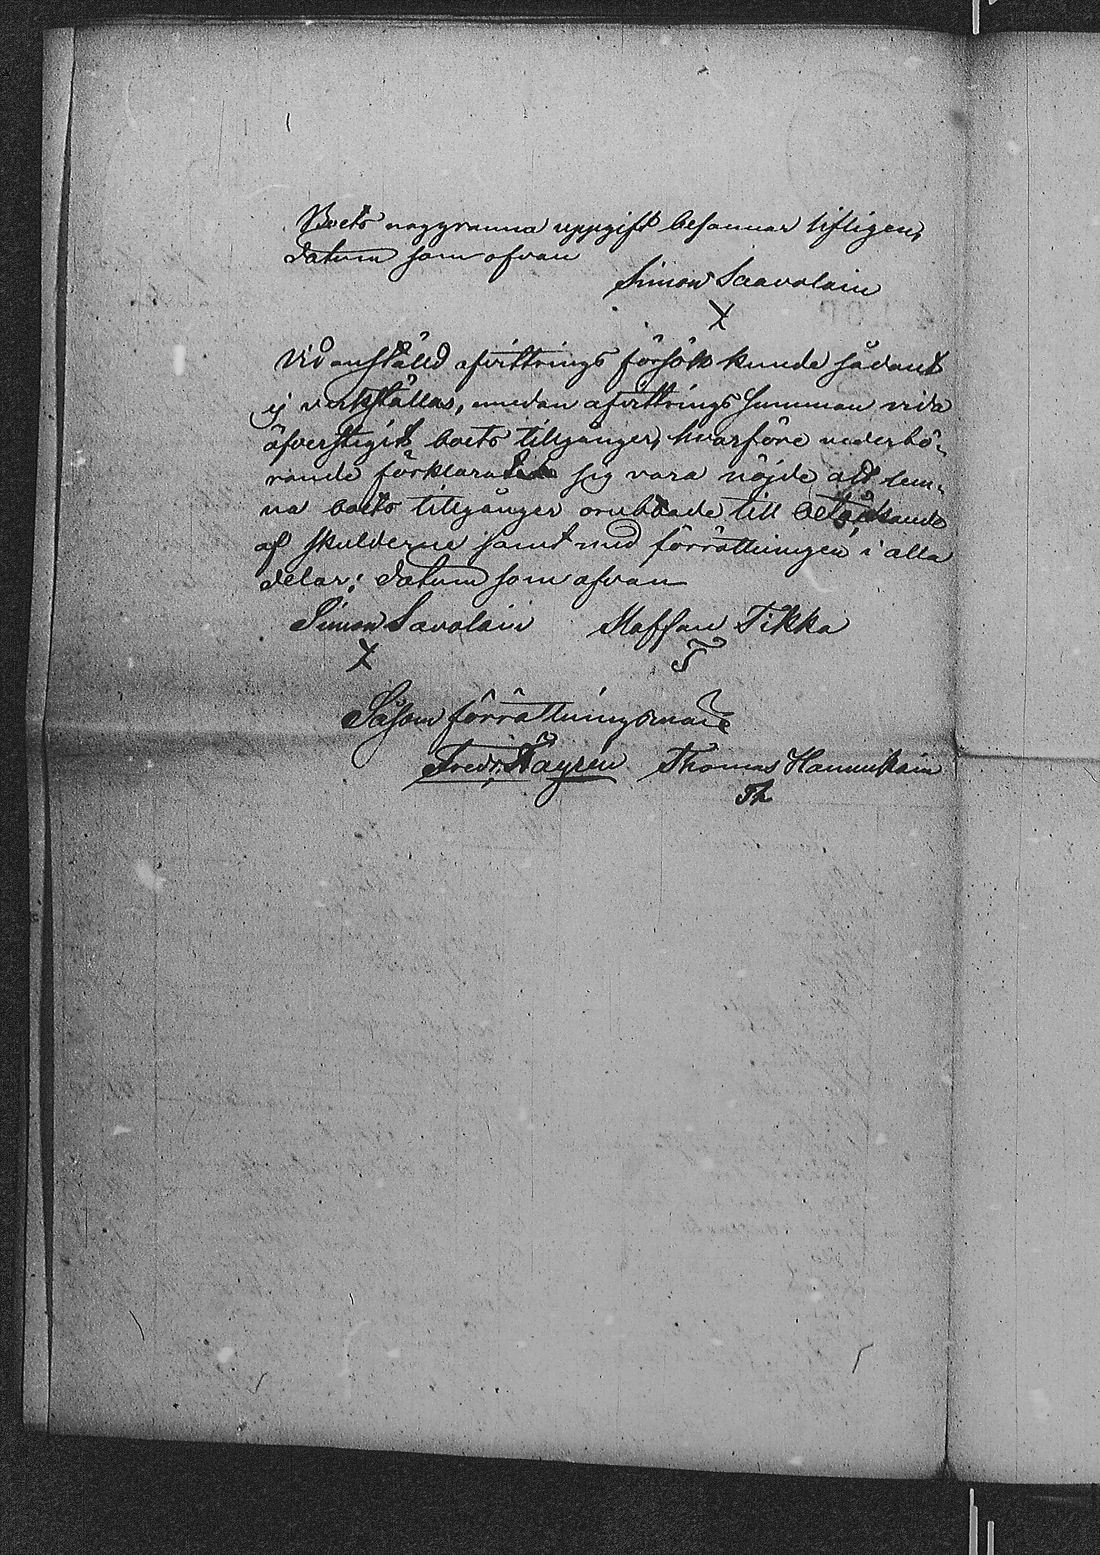 Boets noggranna uppgift besannar lifligen,
datum som ofvan
Simon Saavolain
X
Vid anstäld afvittrings försök kunde sådant
ej verkställas, emedan afvittrings summan vida
öfverstigit boets tillgångar, hvarföre vederbö-
rande förklarade sig vara nöjde att lem-
na boets tillgångar orubbade till betäckande
af skulderne samt med förrättningen i alla
delar; datum som ofvan
Simon Savolain Staffan Tikka
X T
Såsom förrättningsmän
Fredr. Hayrén Thomas Hannukain
Th